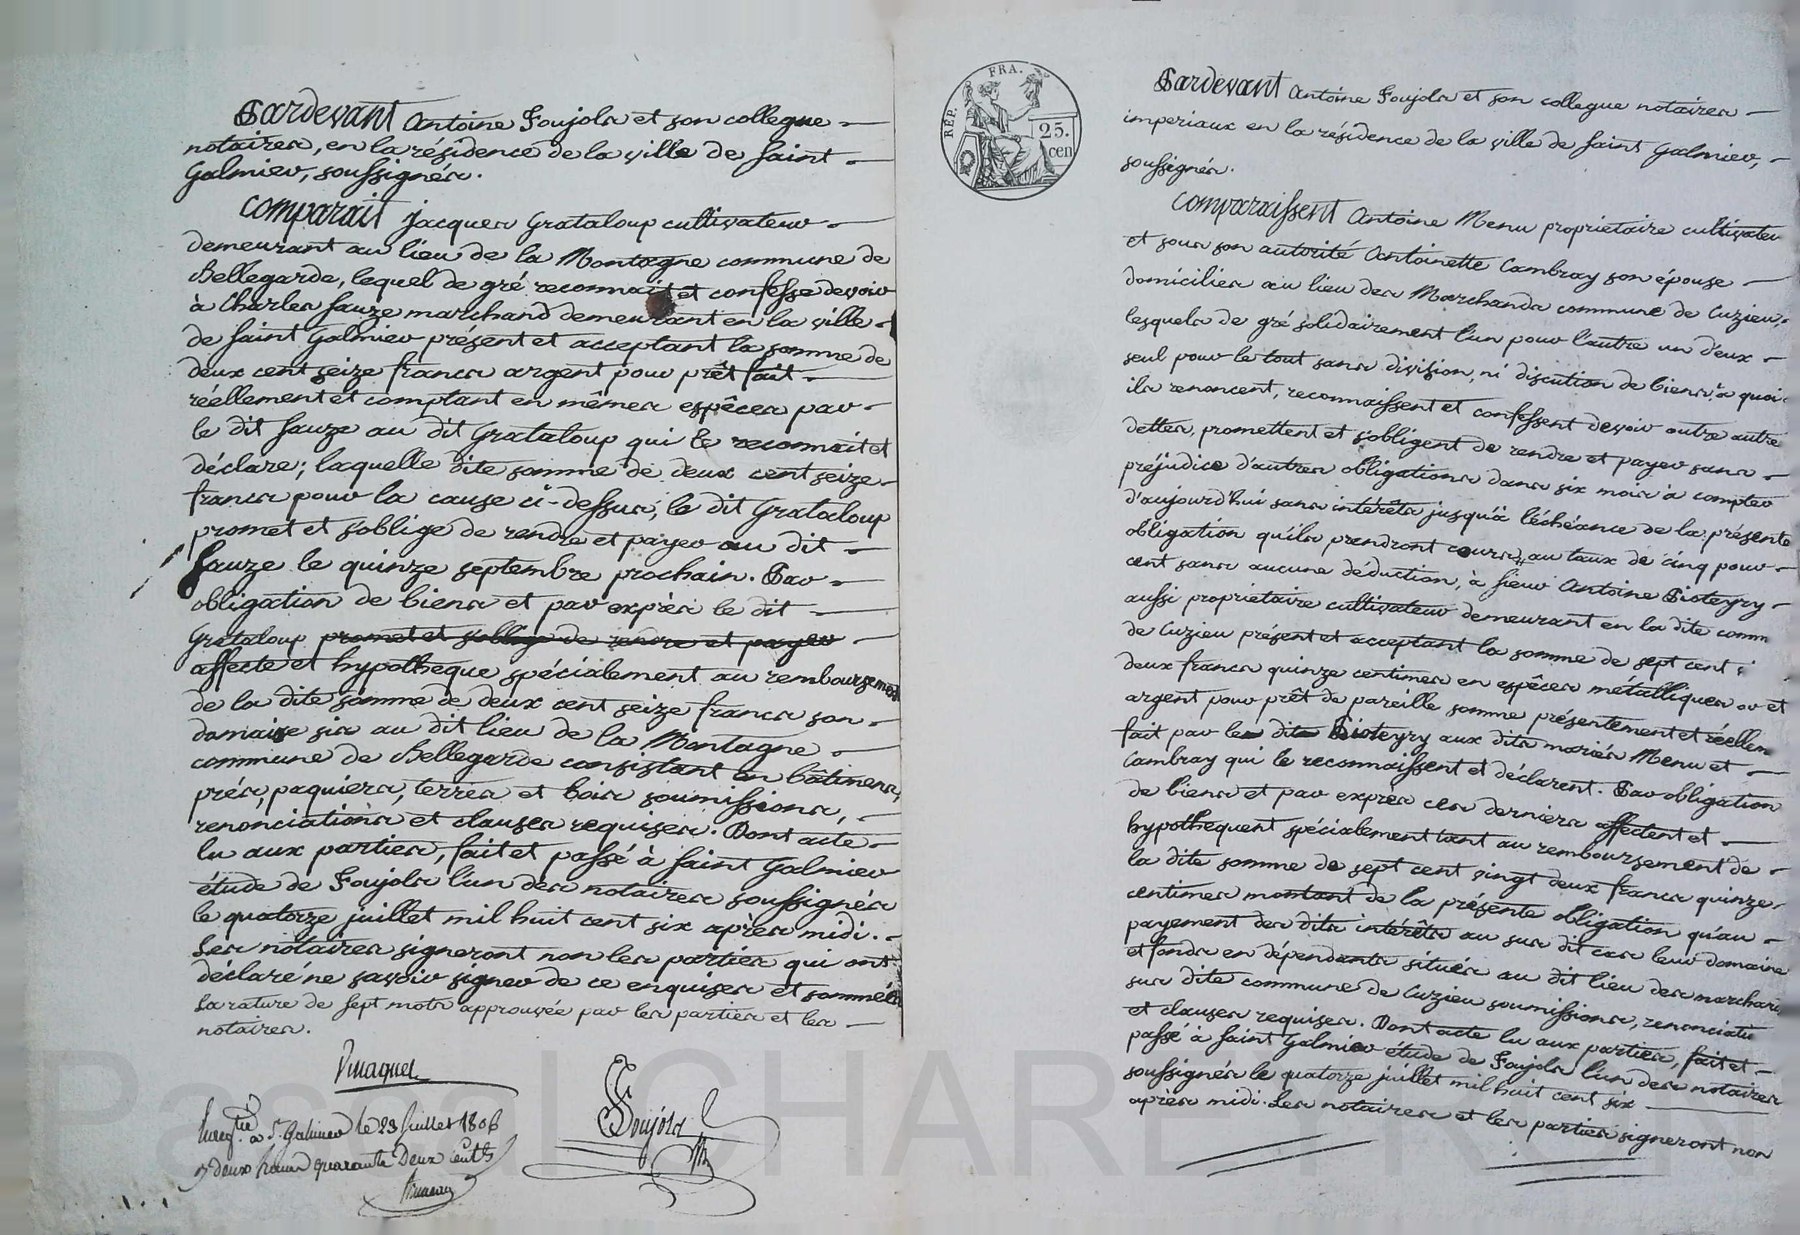 Pardevant Antoine Foujols et son collegue
notaires, en la résidence de la ville de Saint
Galmier, soussignés.
Comparait Jacques Grataloup cultivateur
demeurant au lieu de la Montagne commune de
Bellegarde, lequel de gré reconnait et confesse devoir
à Charles Sauze marchand demeurant en la ville
de Saint Galmier présent et acceptant la somme de
deux cent seize francs argent pour prêt fait
réellement et comptant en mêmes espêces par
le dit Sauze au dit Grataloup qui le reconnait et
déclare; laquelle dite somme de deux cent seize
francs pour la cause ci-dessus, le dit Grataloup
promet et s'oblige de rendre et payer au dit
Sauze le quinze septembre prochain. Par
obligation de biens et par exprès le dit
Grataloup promet et s'oblige de rendre et payer
affecte et hypotheque spécialement au remboursement
de la dite somme de deux cent seize francs son
domaine sis au dit lieu de la Montagne
commune de Bellegarde consistant en bâtimens,
prés, paquiers, terres et bois soumissions,
renonciations et clauses requises. Dont acte
lu aux parties, fait et passé à Saint Galmier
étude de Foujols l'un des notaires soussignés
le quatorze juillet mil huit cent six après midi.
Les notaires signeront non les parties qui ont
déclaré ne savoir signer de ce enquises et sommées
La rature de sept mots approuvée par les parties et les
notaires.
Foujols
à St. Galmier le 23 Juillet 1806
deux francs quarante Deux
RÉP. FRA.
25.
cen
Pardevant Antoine Foujols et son collegue notaires
imperiaux en la résidence de la ville de Saint Galmier,
soussignés.
Comparaissent Antoine Menu propriétaire cultivateu
et sous son autorité Antoinette Cambray son épouse
domiciliés au lieu des Marchands commune de Cuzieu,
lesquels de gré solidairement l'un pour l'autre un d'eux
seul pour le tout sans division, ni discution de biens, à quoi
ils renoncent, reconnaissent et confessent devoir outre autre
dettes, promettent et s'obligent de rendre et payer sans
préjudice d'autres obligations dans six mois à compter
d'aujourd'hui sans intérêts jusqu'à l'échéance de la présente
obligation qu'ils prendront cours, au taux de cinq pour
cent sans aucune déduction, à sieur Antoine Pioteyry
aussi propriétaire cultivateur demeurant en la dite comm
de Cuzieu présent et acceptant la somme de sept cent
deux francs quinze centimes en espêces métalliques or et
argent pour prêt de pareille somme présentement et réellem
fait par le dit Pioteyry aux dits mariés Menu et
Cambray qui le reconnaissent et déclarent. Par obligation
de biens et par exprès ces derniers affectent et
hypothequent spécialement tant au remboursement de
la dite somme de sept cent vingt deux francs quinze
centimes montant de la présente obligation qu'au
payement des dits intérêts au sus dit cas leur domaine
et fonds en dépendants situés au dit lieu des marchan
sus dite commune de Cuzieu soumissions, renonciati
et clauses requises. Dont acte lu aux parties, fait et
passé à Saint Galmier étude de Foujols l'un des notaires
soussignés le quatorze juillet mil huit cent six
après midi. Les notaires et les parties signeront non
Pascal CHAREYRON